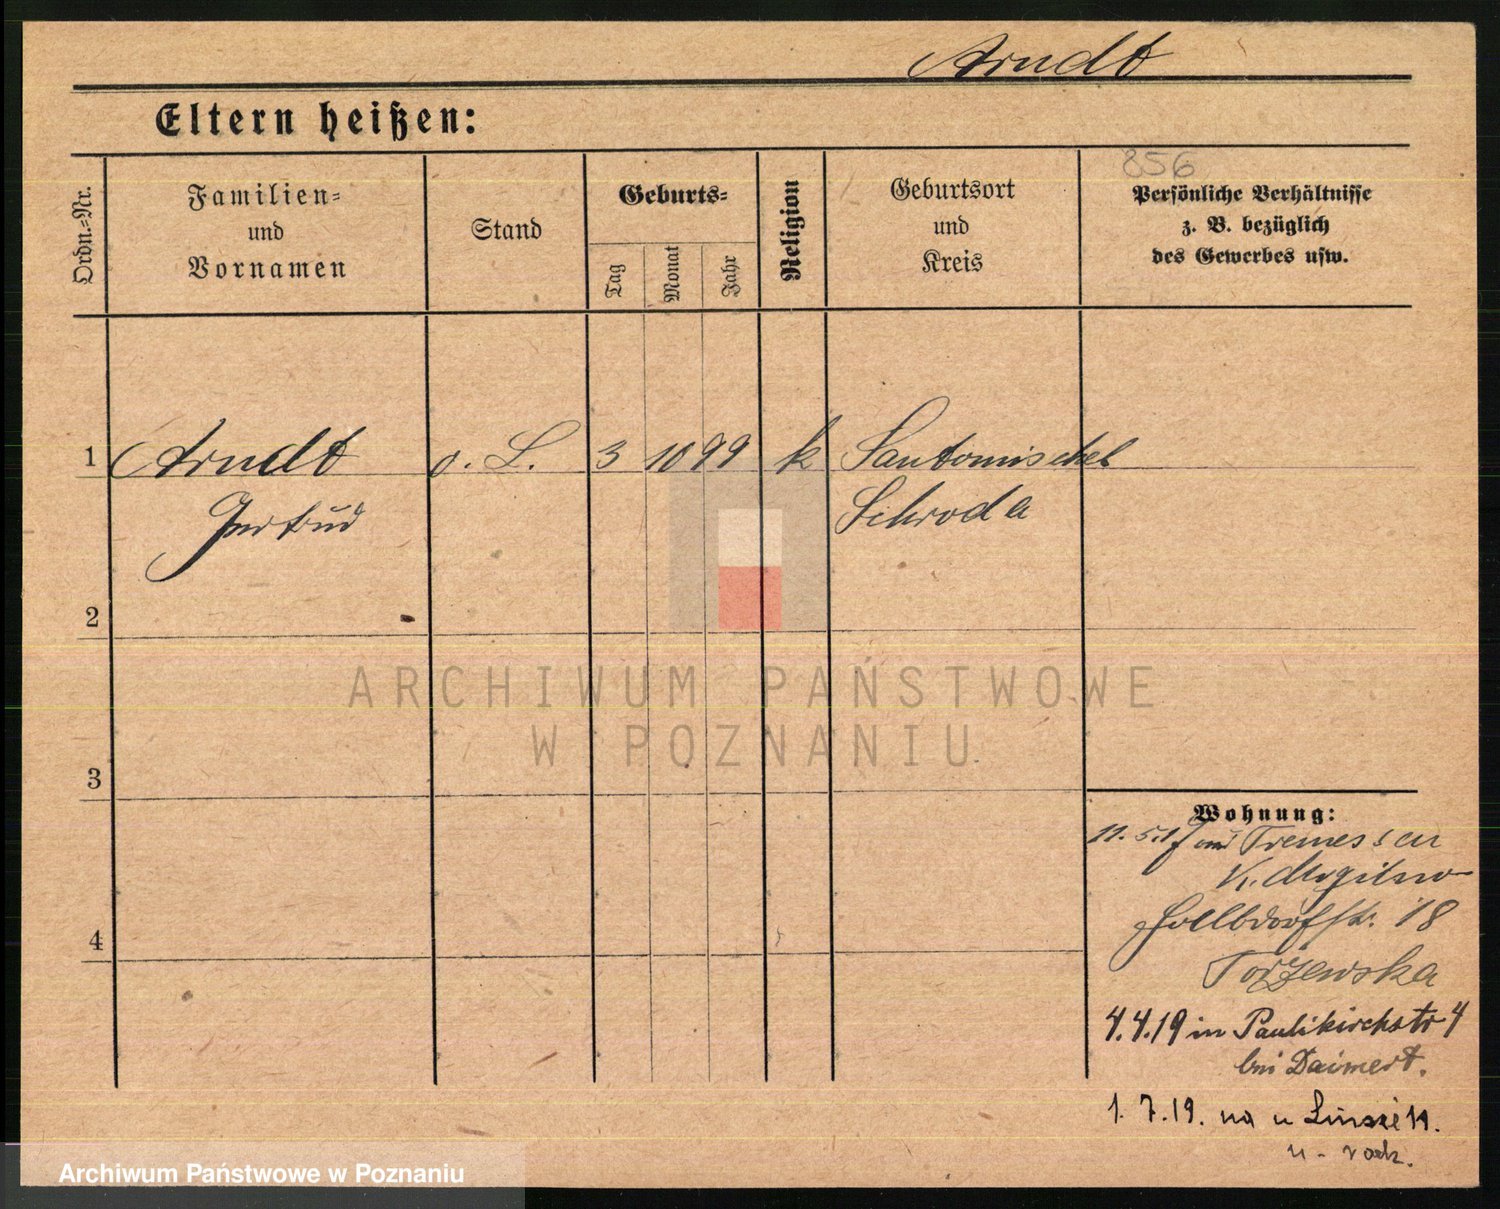 Arndt
Eltern heißen:
856
Ordn.=Nr.
Familien=
und
Vornamen
Stand
Geburts=
Tag
Monat
Jahr
Religion
Geburtsort
und
Kreis
Persönliche Verhältnisse
z. B. bezüglich
des Gewerbes usw.
1 Arndt o. L. 3 10 99 k Santomischel
Gertrud Schroda
2
3
4
Wohnung:
11. 5. 17 aus Tremessen
K. Mogilno
18
Torzewska
4.4.19 in Paulikirchstr 4
bei Daimert.
1. 7. 19. na u
ARCHIWUM PAŃSTWOWE
W POZNANIU
Archiwum Państwowe w Poznaniu